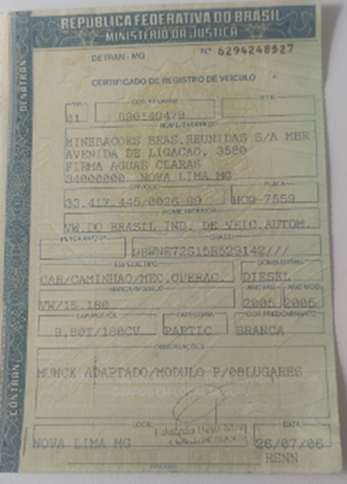 REPÚBLICA FEDERATIVA DO BRASIL
MINISTÉRIO DA JUSTIÇA
DENATRAN
DETRAN - MG Nº 6294248527
CERTIFICADO DE REGISTRO DE VEÍCULO
01
NOME/ENDEREÇO
MINERACOES BRAS.REUNIDAS S/A MBR
AVENIDA DE LIGACAO, 3580
FIRMA AGUAS CLARAS
34000000 NOVA LIMA MG
PLACA
33.417.445/0026-99 HCQ-7559
NOME ANTERIOR
VW.DO BRASIL IND. DE VEIC.AUTOM.
CHASSI
9BWNE72S15R529142///
COMBUSTÍVEL
CAR/CAMINHAO/MEC.OPERAC. DIESEL
MARCA/MODELO ANO FAB ANO MOD
VW/15.180 2005 2005
CATEGORIA COR PREDOMINANTE
9,80T/180CV PARTIC BRANCA
OBSERVAÇÕES
MUNCK ADAPTADO/MODULO P/08LUGARES
CONTRAN
LOCAL DATA
NOVA LIMA MG 26/07/06